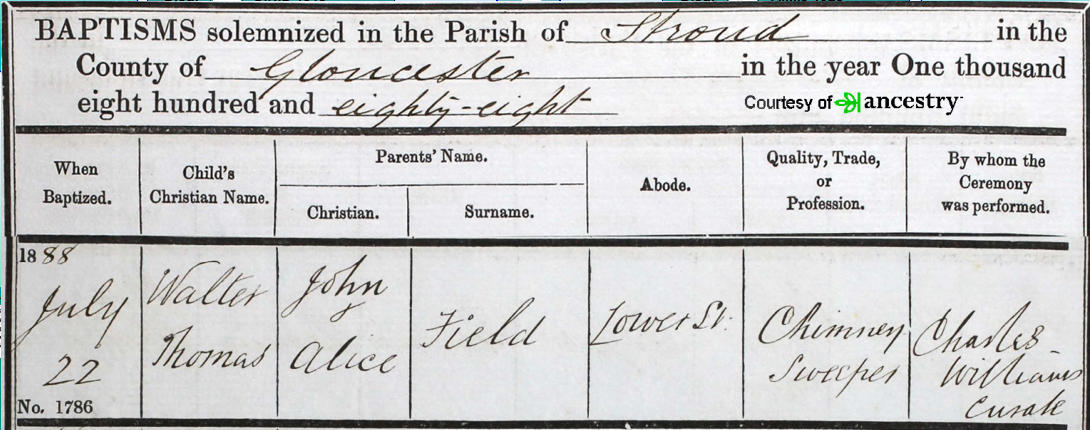 BAPTISMS solemnized in the Parish of Stroud in the
County of Gloucester in the year One thousand
eight hundred and eighty-eight
Courtesy of ancestry
When Baptized.
Child's Christian Name.
Parents' Name.
Christian.
Surname.
Abode.
Quality, Trade, or Profession.
By whom the Ceremony was performed.
1888
July
22
No. 1786
Walter
Thomas
John
Alice
Field
Lower St.
Chimney
Sweeper
Charles
Williams
Curate